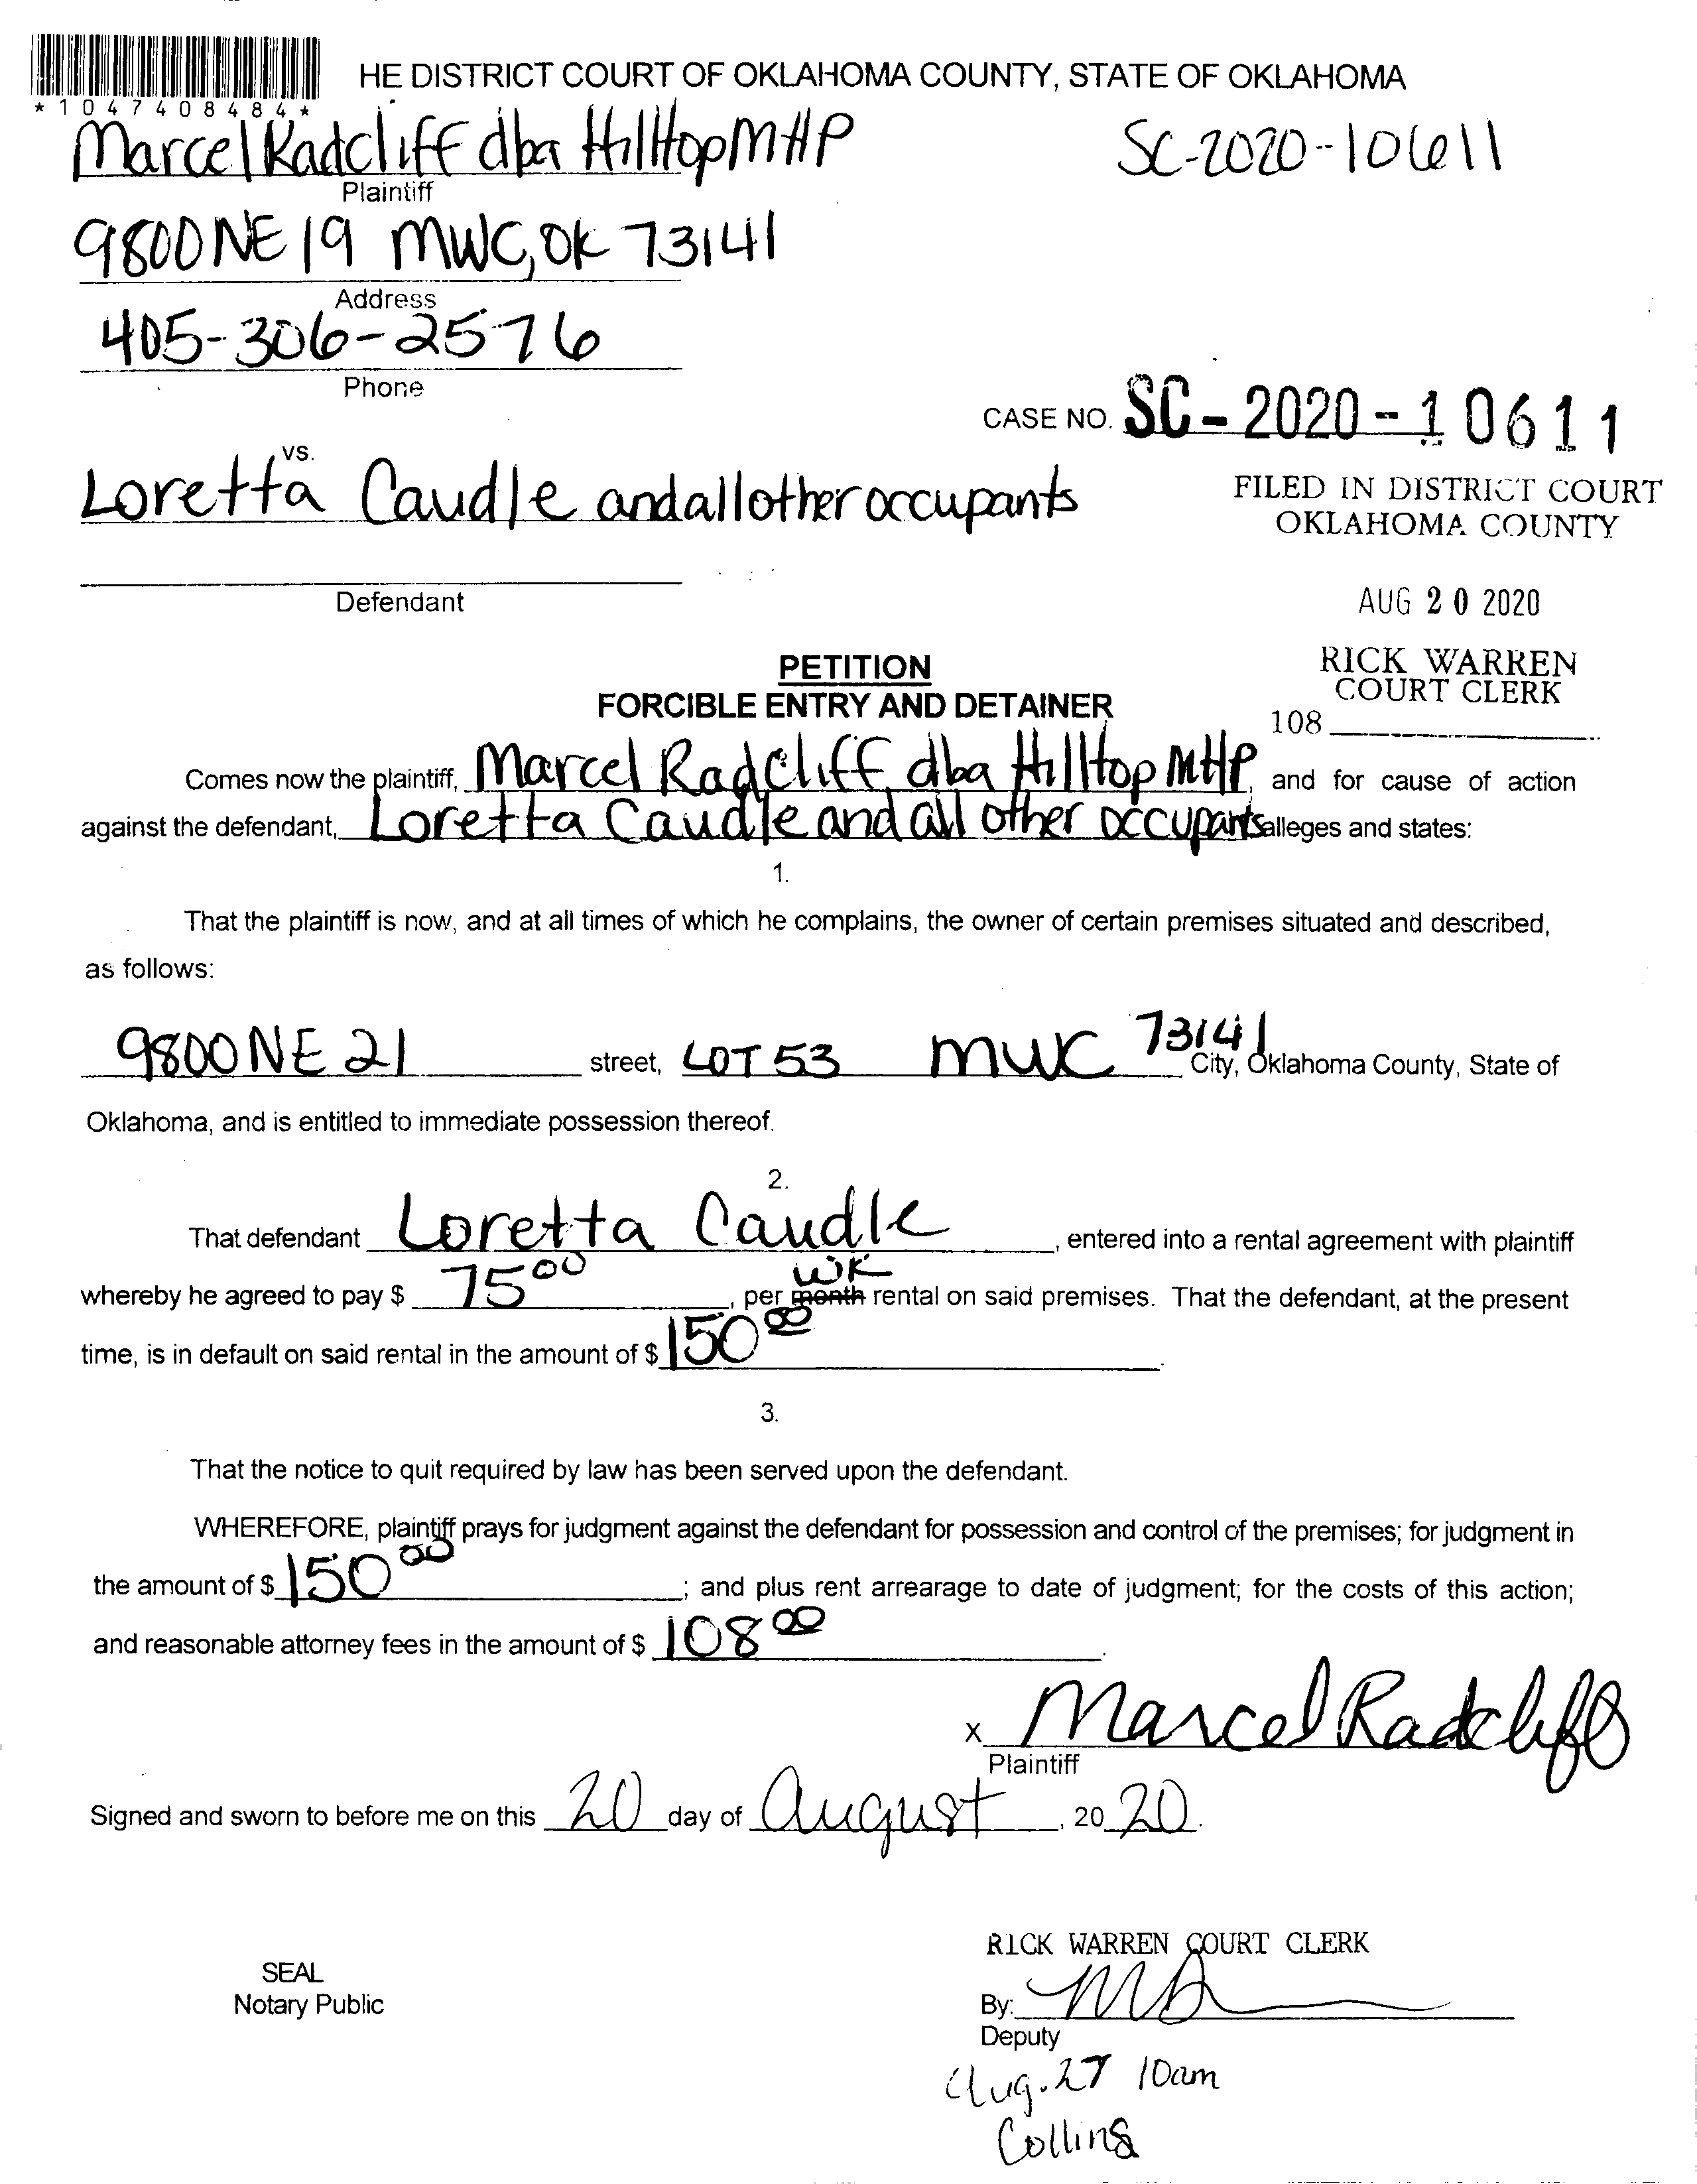 HE DISTRICT COURT OF OKLAHOMA COUNTY, STATE OF OKLAHOMA
*1047408484*
Marcel Radcliff dba HillTop MHP
SC-2020-10611
Plaintiff
9800 NE 19 MWC, OK 73141
Address
405-306-2576
Phone
CASE NO. SC-2020-10611
vs.
Loretta Caudle and all other occupants
FILED IN DISTRICT COURT
OKLAHOMA COUNTY
Defendant
AUG 20 2020
PETITION
FORCIBLE ENTRY AND DETAINER
RICK WARREN
COURT CLERK
108
Comes now the plaintiff, Marcel Radcliff dba HillTop MHP, and for cause of action
against the defendant, Loretta Caudle and all other occupants alleges and states:
1.
That the plaintiff is now, and at all times of which he complains, the owner of certain premises situated and described,
as follows:
9800 NE 21 street, LOT 53 MWC 73141 City, Oklahoma County, State of
Oklahoma, and is entitled to immediate possession thereof.
2.
That defendant Loretta Caudle, entered into a rental agreement with plaintiff
whereby he agreed to pay $ 75 00, per month wk rental on said premises. That the defendant, at the present
time, is in default on said rental in the amount of $ 150 00.
3.
That the notice to quit required by law has been served upon the defendant.
WHEREFORE, plaintiff prays for judgment against the defendant for possession and control of the premises; for judgment in
the amount of $ 150 00; and plus rent arrearage to date of judgment; for the costs of this action;
and reasonable attorney fees in the amount of $ 108 00.
X Marcel Radcliff
Plaintiff
Signed and sworn to before me on this 20 day of August, 20 20.
RICK WARREN COURT CLERK
SEAL
Notary Public
By:
Deputy
Aug. 27 10am
Collins